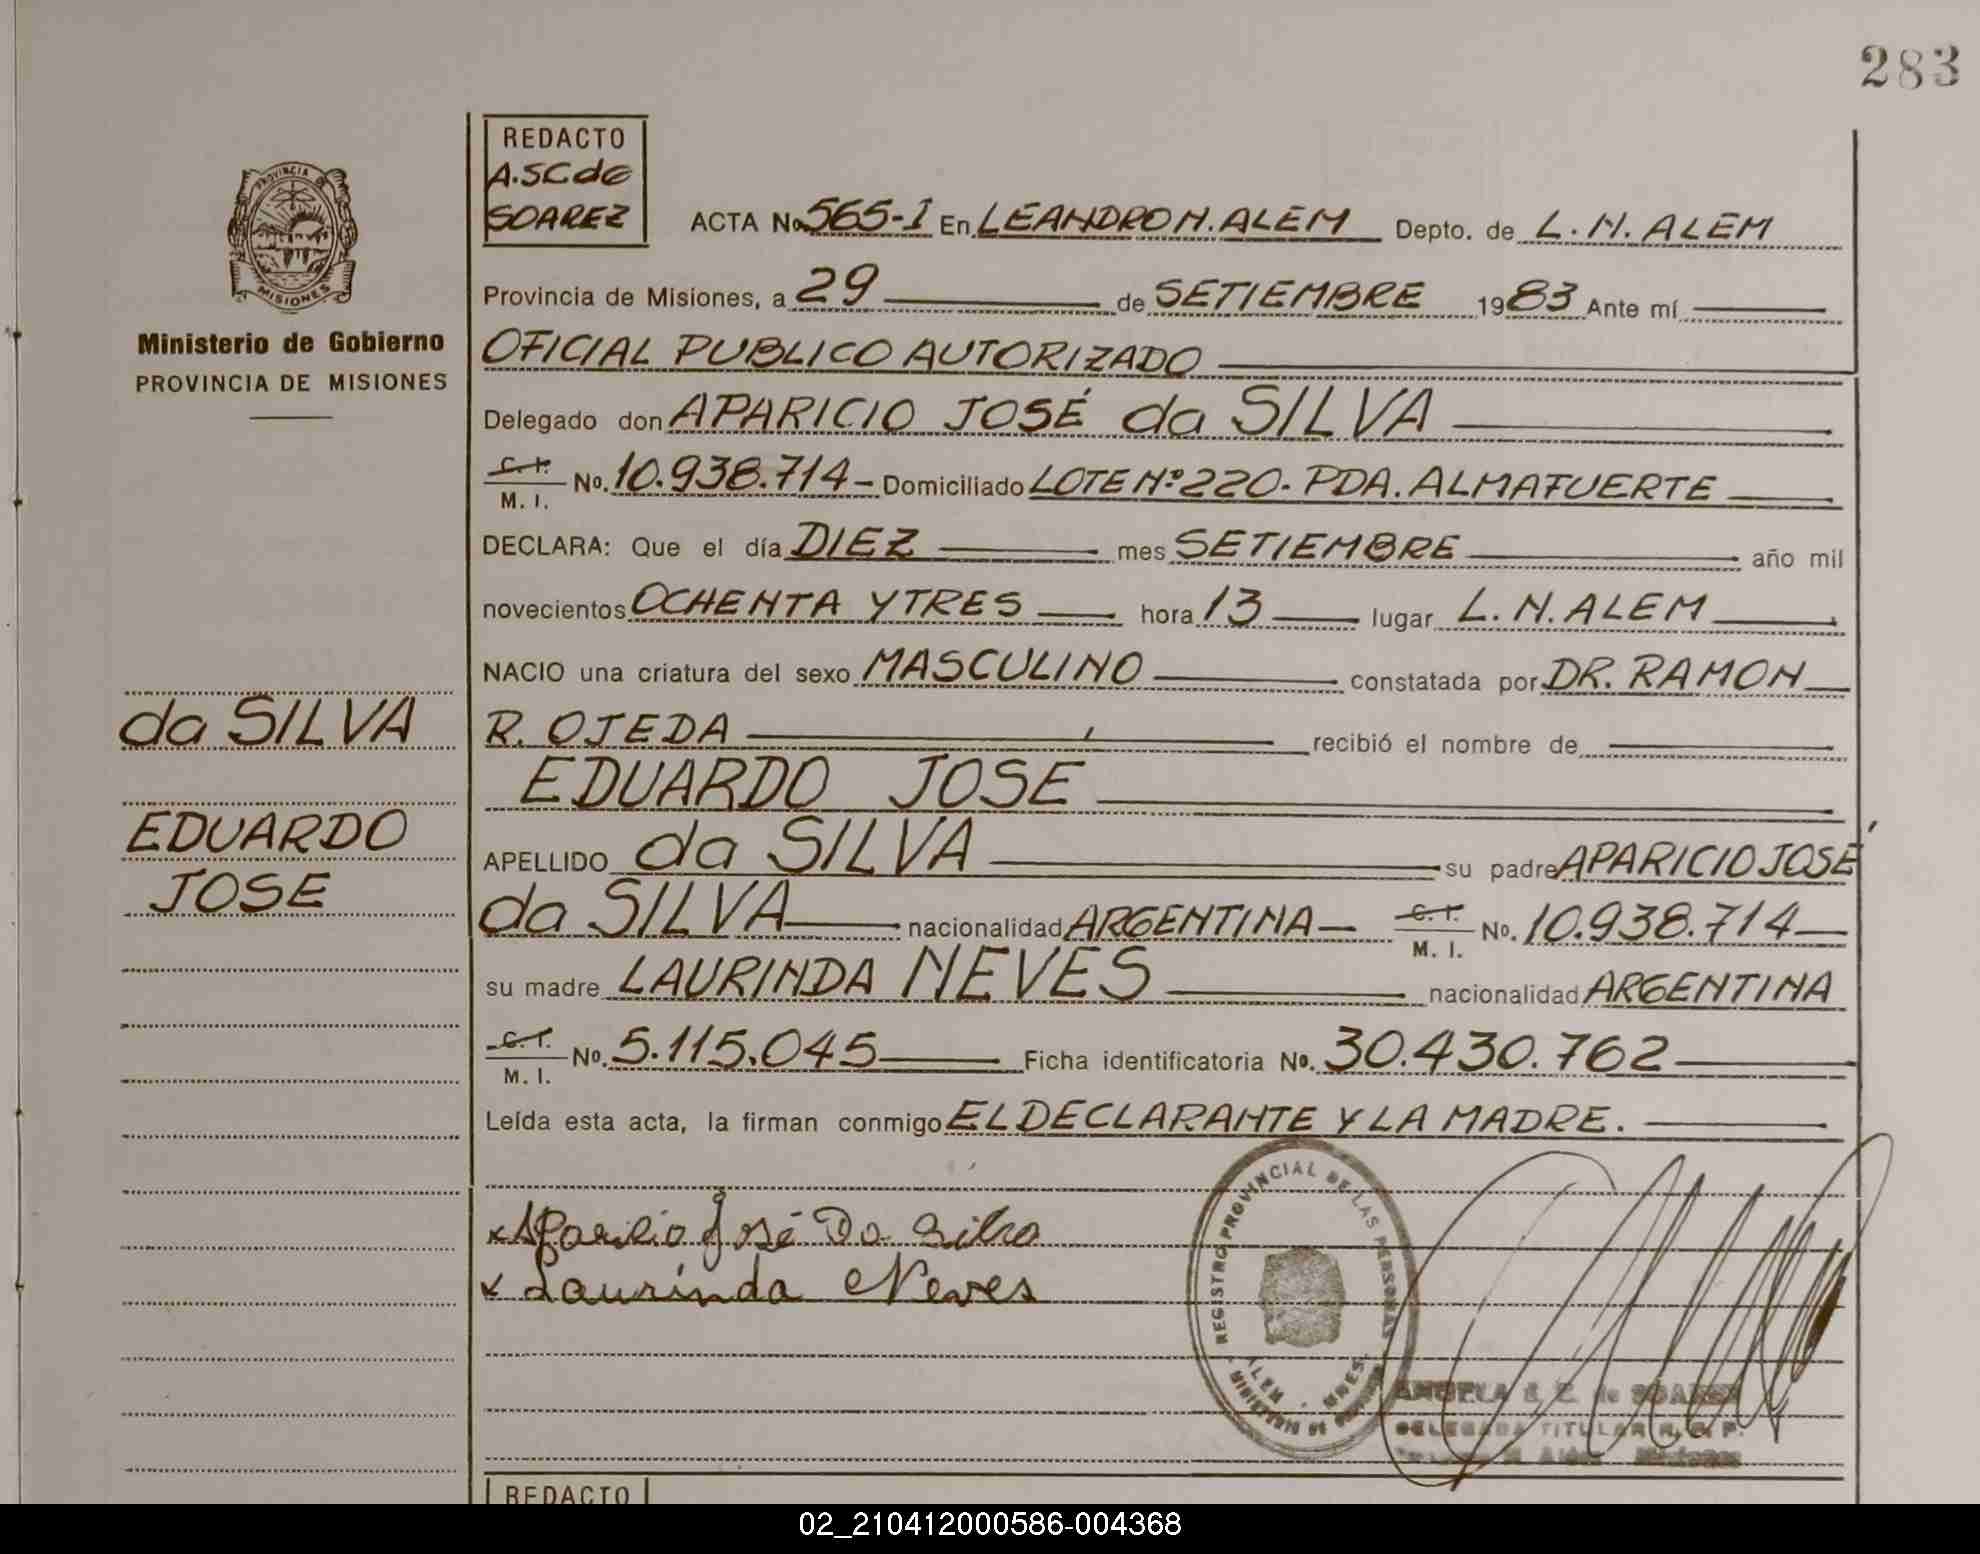 283
REDACTO
A.SC de
SOAREZ
ACTA No. 565-I En LEANDRO N. ALEM Depto. de L. N. ALEM
PROVINCIA DE
MISIONES
Ministerio de Gobierno
PROVINCIA DE MISIONES
Provincia de Misiones, a 29 de SETIEMBRE 1983 Ante mí
OFICIAL PUBLICO AUTORIZADO
Delegado don APARICIO JOSÉ da SILVA
C. I. M. I. No. 10.938.714 - Domiciliado LOTE Nº 220- PDA. ALMAFUERTE
DECLARA: Que el día DIEZ mes SETIEMBRE año mil
novecientos OCHENTA Y TRES hora 13 lugar L. N. ALEM
NACIO una criatura del sexo MASCULINO constatada por DR. RAMON
R. OJEDA recibió el nombre de
EDUARDO JOSE
APELLIDO da SILVA su padre APARICIO JOSÉ
da SILVA nacionalidad ARGENTINA C. I. M. I. No. 10.938.714
su madre LAURINDA NEVES nacionalidad ARGENTINA
C. I. M. I. No. 5.115.045 Ficha identificatoria No. 30.430.762
Leída esta acta, la firman conmigo EL DECLARANTE Y LA MADRE.
da SILVA
EDUARDO
JOSE
x Aparicio José Da Silva
x Laurinda Neves
REGISTRO PROVINCIAL DE LAS PERSONAS
ALEM - MNES.
ANGELA S. C. de SOAREZ
DELEGADA TITULAR R. P. P.
N. Alem Misiones
REDACTO
02_210412000586-004368